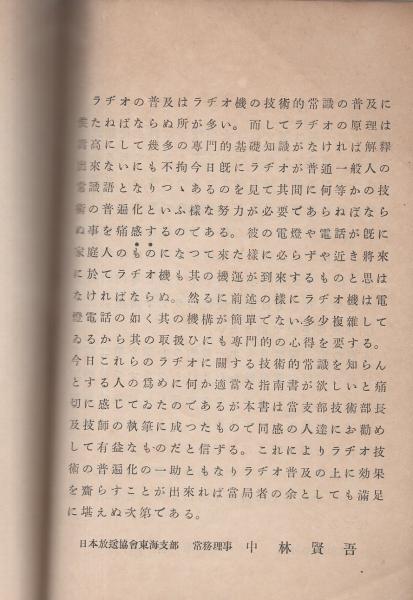 ラヂオの普及はラヂオ機の技術的常識の普及に
俟たねばならぬ所が多い。而してラヂオの原理は
高にして幾多の專門的基礎知識がなければ解釋
出來ないにも不拘今日旣にラヂオが普通一般人の
常識語となりつゝあるのを見て其間に何等かの技
術の普遍化といふ樣な努力が必要であらねばなら
ぬ事を痛感するのである。彼の電燈や電話が旣に
家庭人のものになつて來た樣に必らずや近き將來
に於てラヂオ機も其の機運が到來するものと思は
なければならぬ。然るに前述の樣にラヂオ機は電
燈電話の如く其の機構が簡單でない、多少複雜して
ゐるから其の取扱ひにも專門的の心得を要する。
今日これらのラヂオに關する技術的常識を知らん
とする人の爲めに何か適當な指南書が欲しいと痛
切に感じてゐたのであるが本書は當支部技術部長
及技師の執筆に成つたもので同感の人達にお勸め
して有益なものだと信ずる。これによりラヂオ技
術の普遍化の一助ともなりラヂオ普及の上に効果
を齎らすことが出來れば當局者の余としても滿足
に堪えぬ次第である。
日本放送協會東海支部 常務理事 中林賢吾